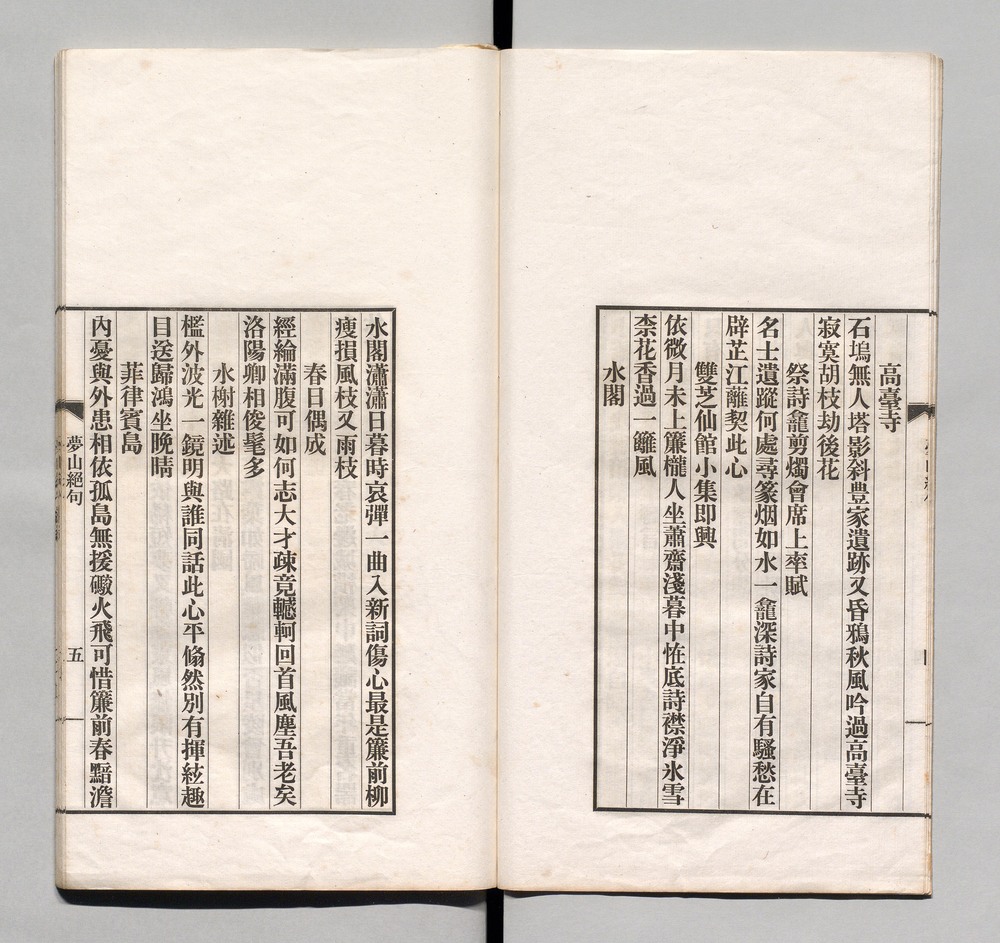 高臺寺
石塢無人塔影斜豊家遺跡又昏鴉秋風吟過高臺寺
寂寞胡枝劫後花
祭詩龕剪燭會席上率賦
名士遺蹤何處尋篆烟如水一龕深詩家自有騷愁在
辟芷江蘺契此心
雙芝仙館小集即興
依微月未上簾櫳人坐蕭齋淺暮中恠底詩襟淨氷雪
柰花香過一籬風
水閣
水閣瀟瀟日暮時哀彈一曲入新詞傷心最是簾前柳
瘦損風枝又雨枝
春日偶成
經綸滿腹可如何志大才疎竟轗軻回首風塵吾老矣
洛陽卿相俊髦多
水榭雜述
檻外波光一鏡明與誰同話此心平翛然別有揮絃趣
目送歸鴻坐晚晴
菲律賓島
內憂與外患相依孤島無援礮火飛可惜簾前春黯澹
夢山絕句
五